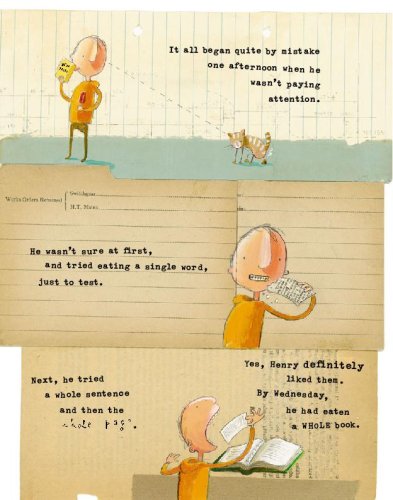 It all began quite by mistake
one afternoon when he
wasn't paying
attention.
Switchgear
Works Orders Received
H.T. Mains
He wasn't sure at first,
and tried eating a single word,
just to test.
Next, he tried
a whole sentence
and then the
whole page.
Yes, Henry definitely
liked them.
By Wednesday,
he had eaten
a WHOLE book.